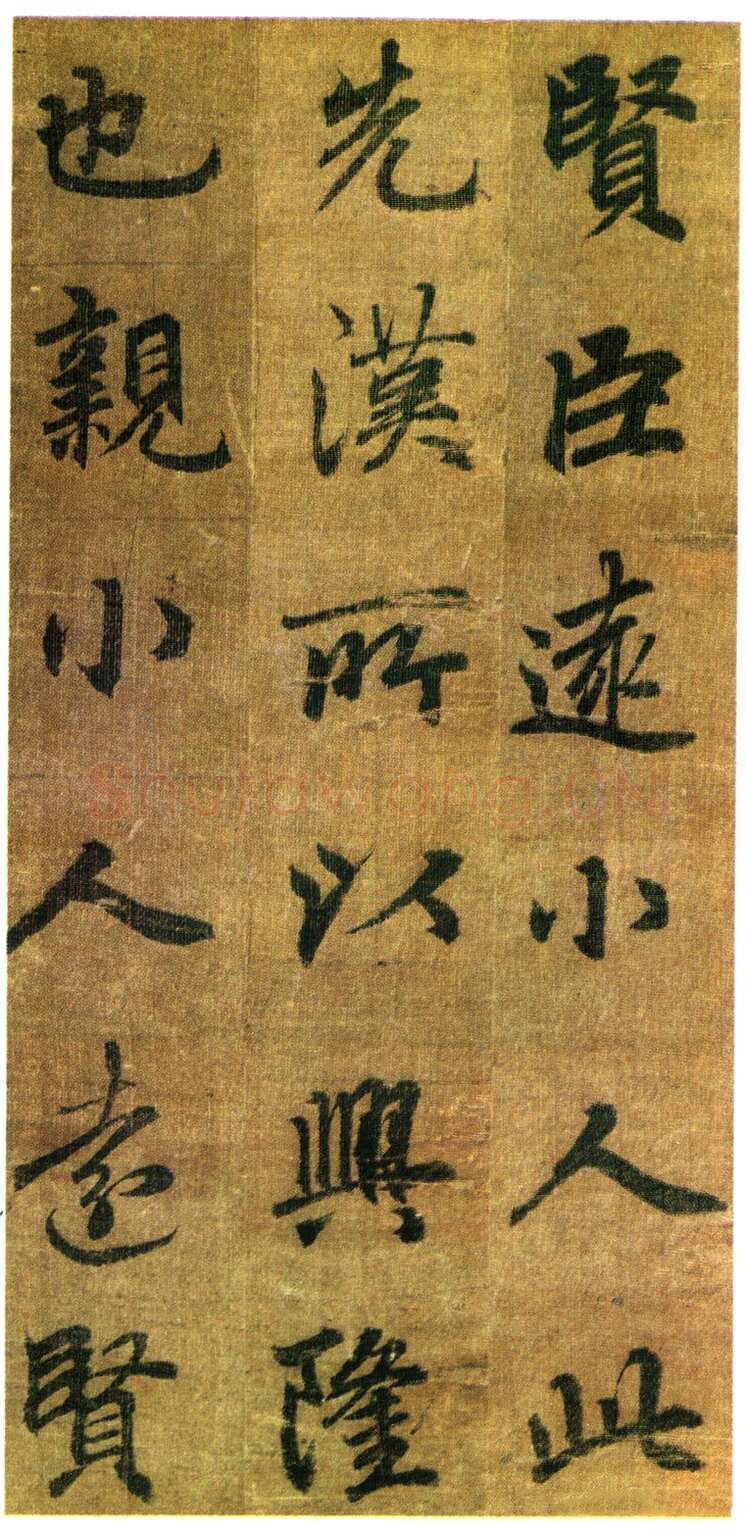 賢臣遠小人此
先漢所以興隆
也親小人遠賢
Shufawang.CN